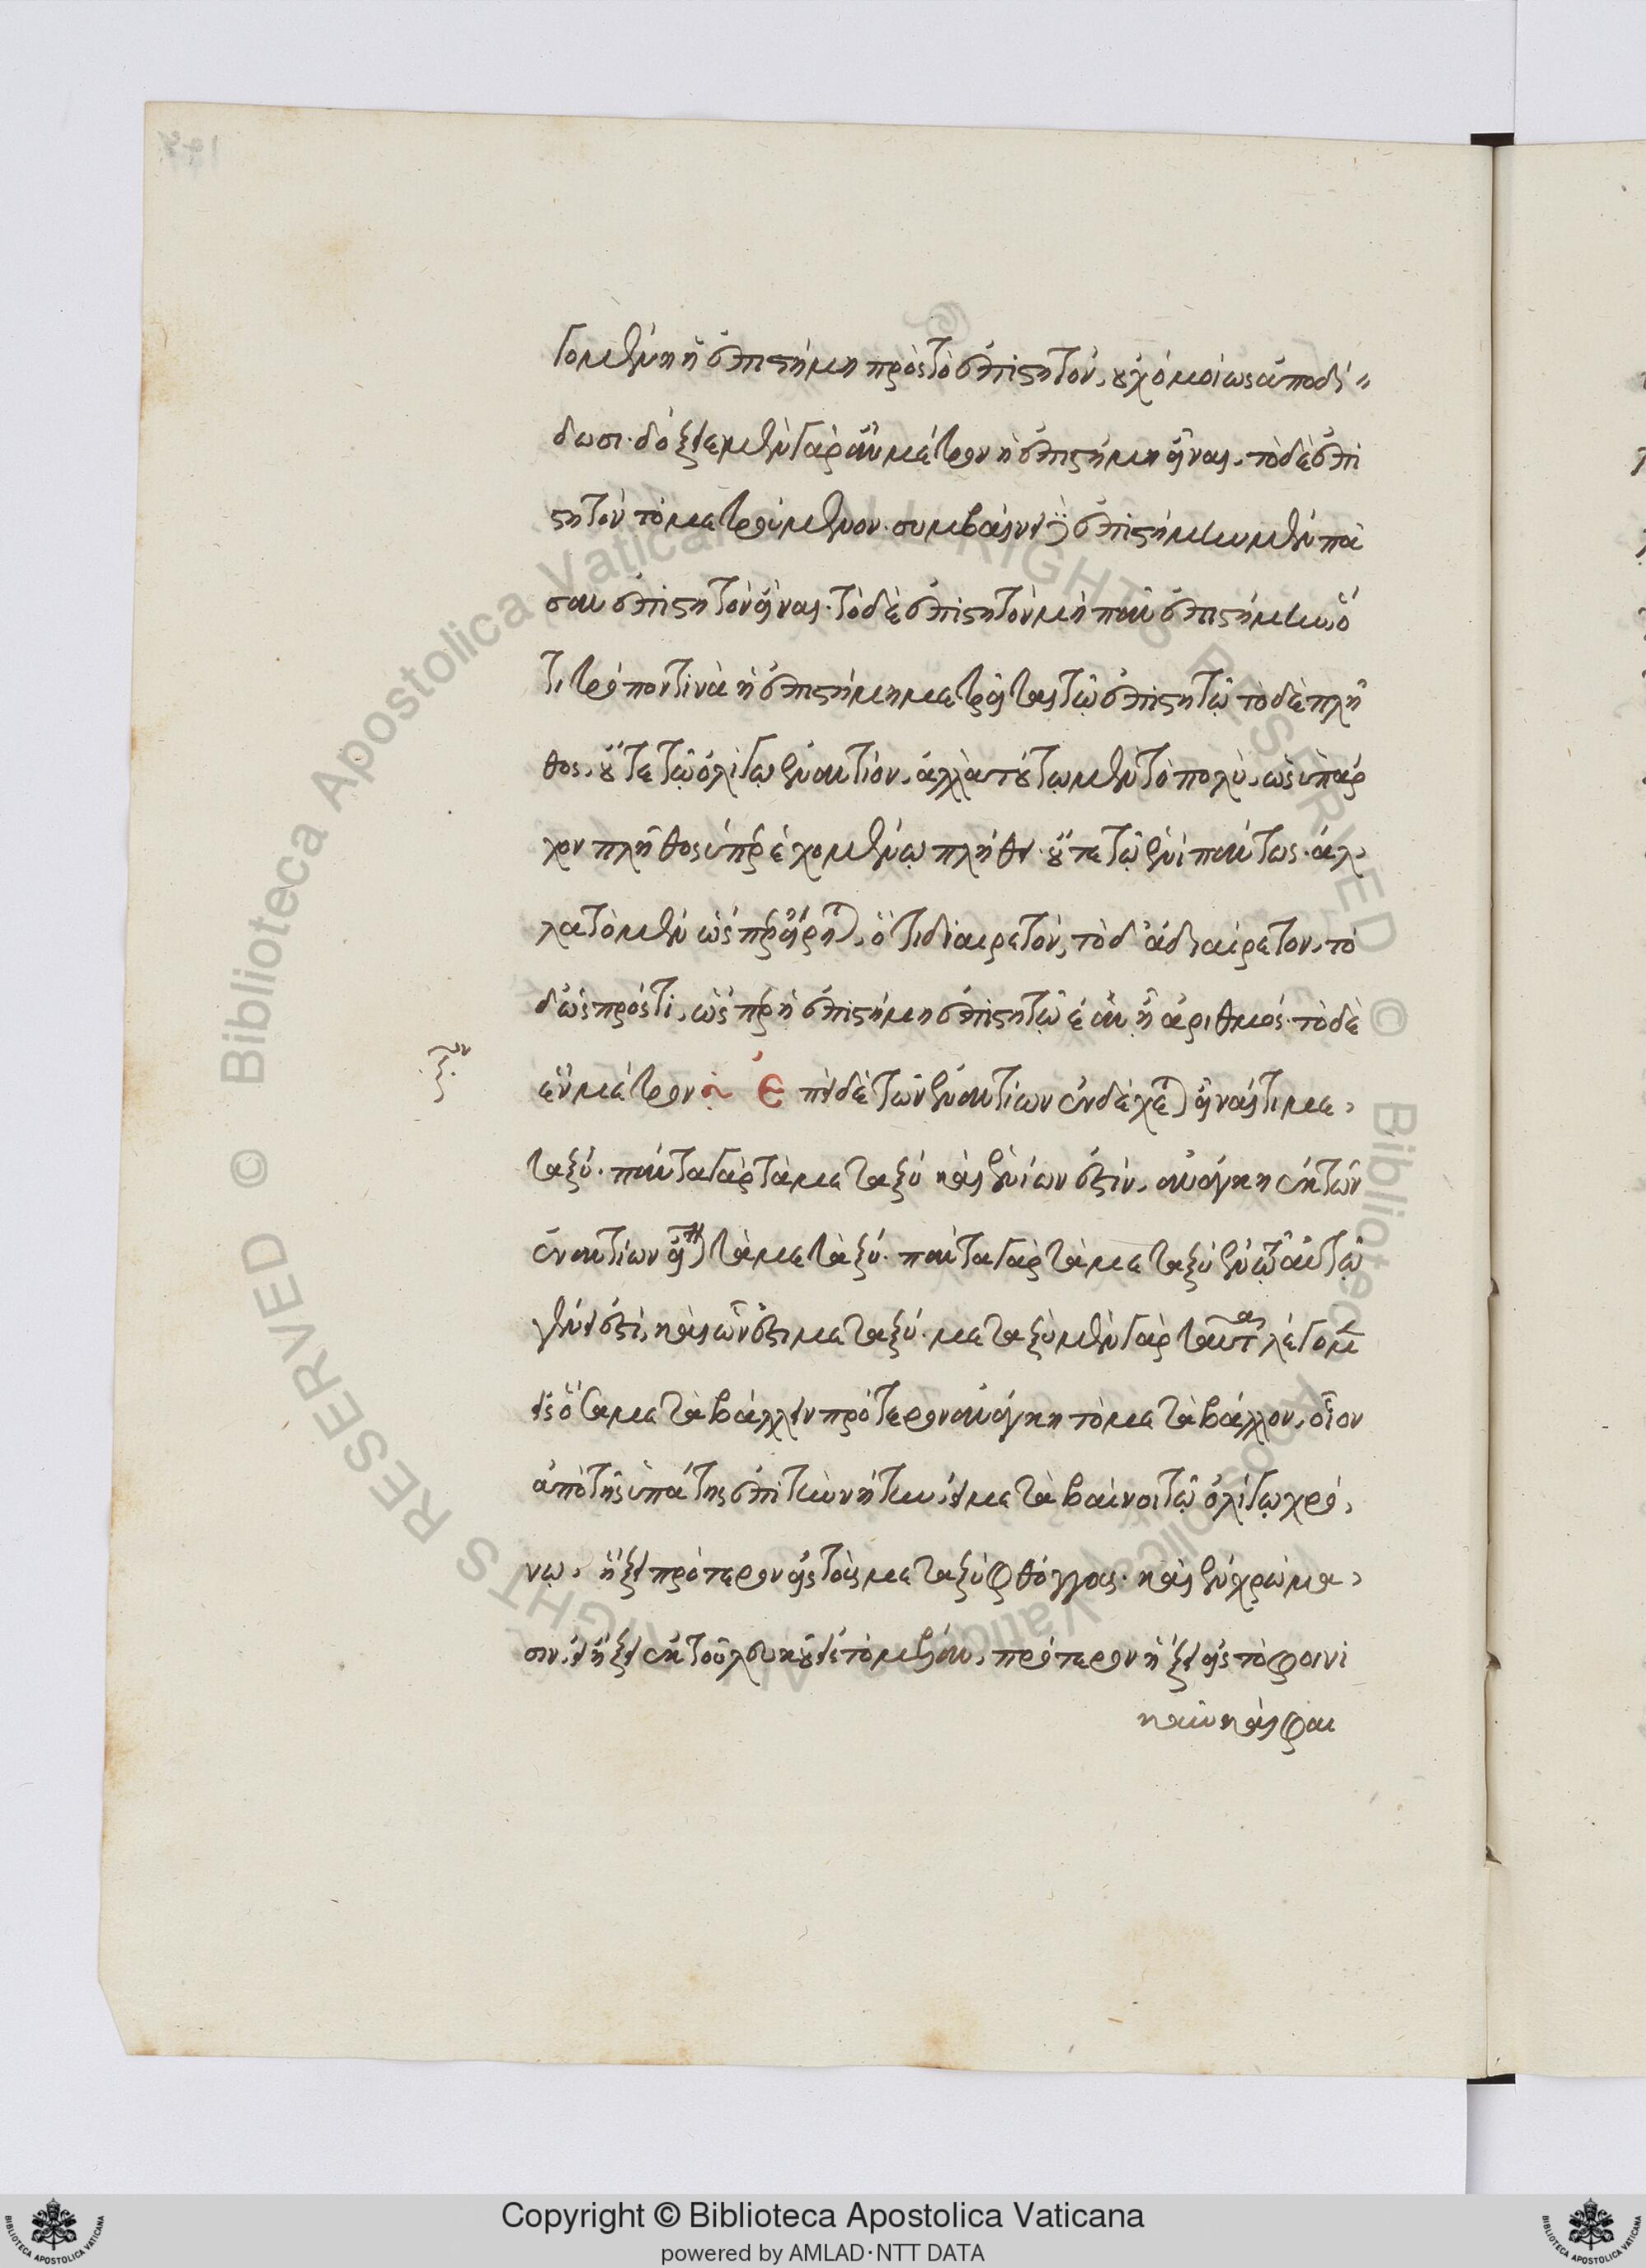 γομένη ἡ ἐπιστήμη πρὸς τὸ ἐπιστητόν, οὐχ ὁμοίως ἀποδί
δωσι. δόξειε μὲν γὰρ ἂν μέτρον ἡ ἐπιστήμη εἶναι, τὸ δὲ ἐπι
στητὸν τὸ μετρούμενον. συμβαίνει δὲ ἐπιστήμην μὲν πᾶ
σαν ἐπιστητὸν εἶναι. τὸ δὲ ἐπιστητὸν μὴ πᾶν ἐπιστήμην, ὅ
τι τρόπον τινὰ ἡ ἐπιστήμη μετρεῖται τῷ ἐπιστητῷ τὸ δὲ πλῆ
θος, οὔτε τῷ ὀλίγῳ ἐναντίον, ἀλλὰ τούτῳ μὲν τὸ πολὺ, ὡς ὑπερέ
χον πλῆθος ὑπερεχομένῳ πλήθει. οὔτε τῷ ἑνὶ πάντως. ἀλ
λὰ τὸ μὲν ὥσπερ εἴρηται, ὅτι διαιρετόν, τὸ δ' ἀδιαίρετον, τὸ
δ' ὡς πρός τι, ὥσπερ ἡ ἐπιστήμη ἐπιστητῷ ἐὰν ᾖ ἀριθμός. τὸ δὲ
ἓν μέτρον Ἐπεὶ δὲ τῶν ἐναντίων ἐνδέχεται εἶναί τι με
ταξύ. πάντα γὰρ τὰ μεταξὺ καὶ ἐνίων ἐστίν, ἀνάγκη ἐκ τῶν
ἐναντίων εἶναι τὰ μεταξύ. πάντα γὰρ τὰ μεταξὺ ἐν τῷ αὐτῷ
γένει ἐστὶ, καὶ ὧν ἐστι μεταξύ. μεταξὺ μὲν γὰρ ταῦτα λέγομεν
εἰς ὅσα μεταβάλλειν πρότερον ἀνάγκη τὸ μεταβάλλον, οἷον
ἀπὸ τῆς ὑπάτης ἐπὶ τὴν νήτην, εἰ μεταβαίνοι τῷ ὀλιγίστῳ χρό
νῳ, ἥξει πρότερον εἰς τοὺς μεταξὺ φθόγγους. καὶ ἐν χρώμα
σιν, εἰ ἥξει ἐκ τοῦ λευκοῦ εἰς τὸ μέλαν, πρότερον ἥξει εἰς τὸ φοινι
κοῦν καὶ φαι